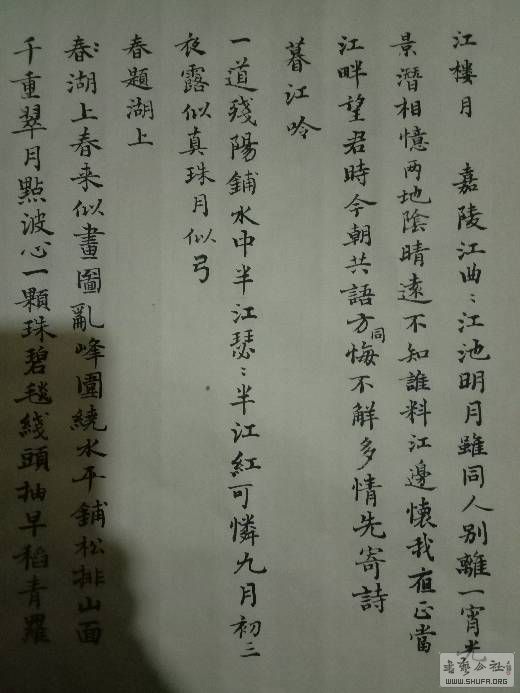 江樓月　嘉陵江曲:江池明月雖同人別離一宵光
景潛相憶兩地陰晴遠不知誰料江邊懷我夜正當
江畔望君時今朝共語方同悔不解多情先寄詩
暮江吟
一道殘陽鋪水中半江瑟:半江紅可憐九月初三
夜露似真珠月似弓
春題湖上
春:湖上春来似畫圖亂峰圍繞水平鋪松排山面
千重翠月點波心一顆珠碧毯綫頭抽早稻青羅
書藝公社
WWW.SHUFA.ORG